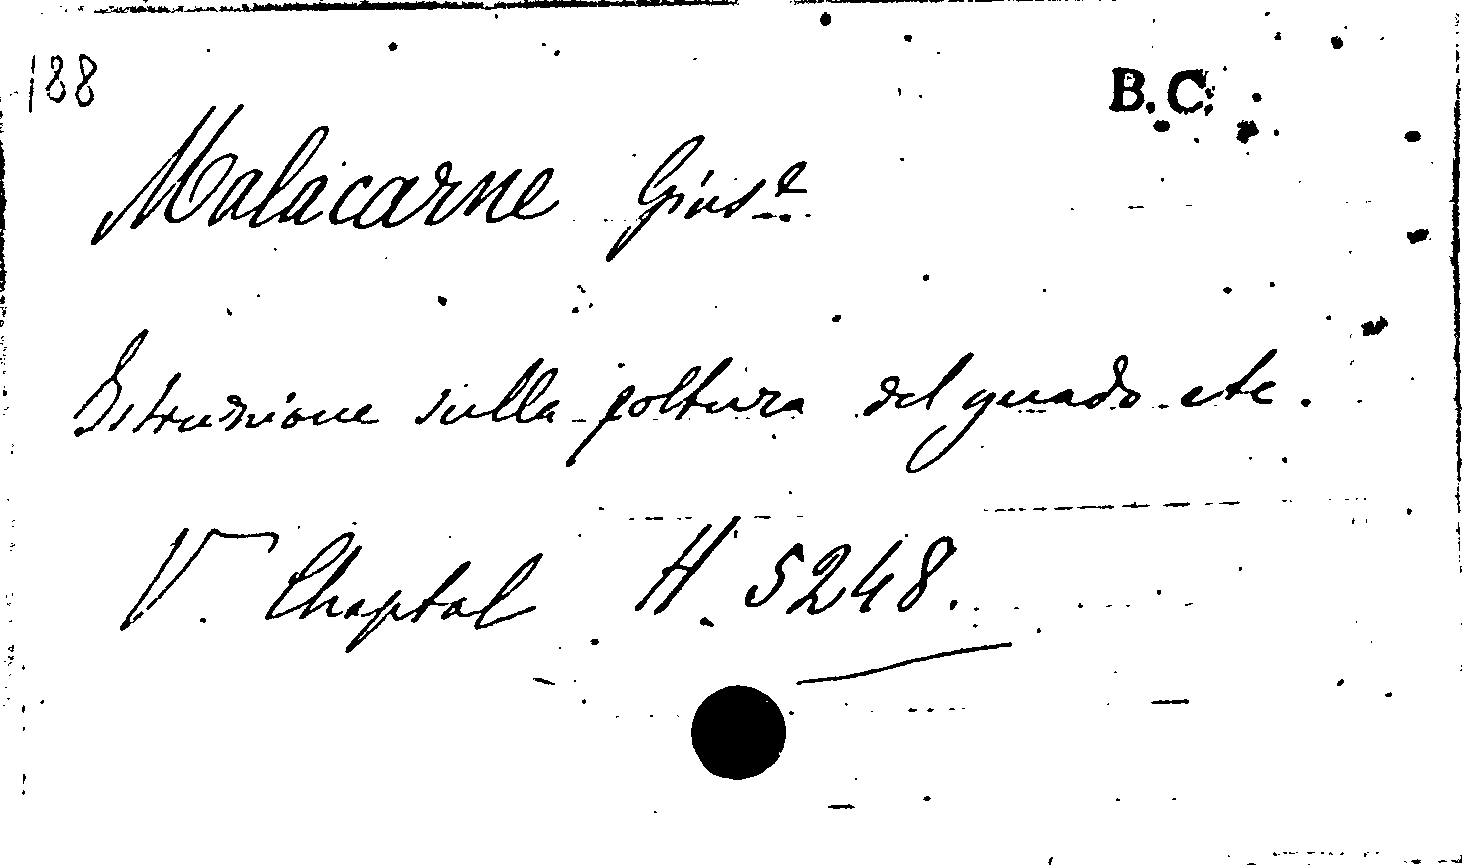 188
B.C.
Malacarne Gius.e
Istruzione sulla coltura del guado etc.
V. Chaptal H. 5248.